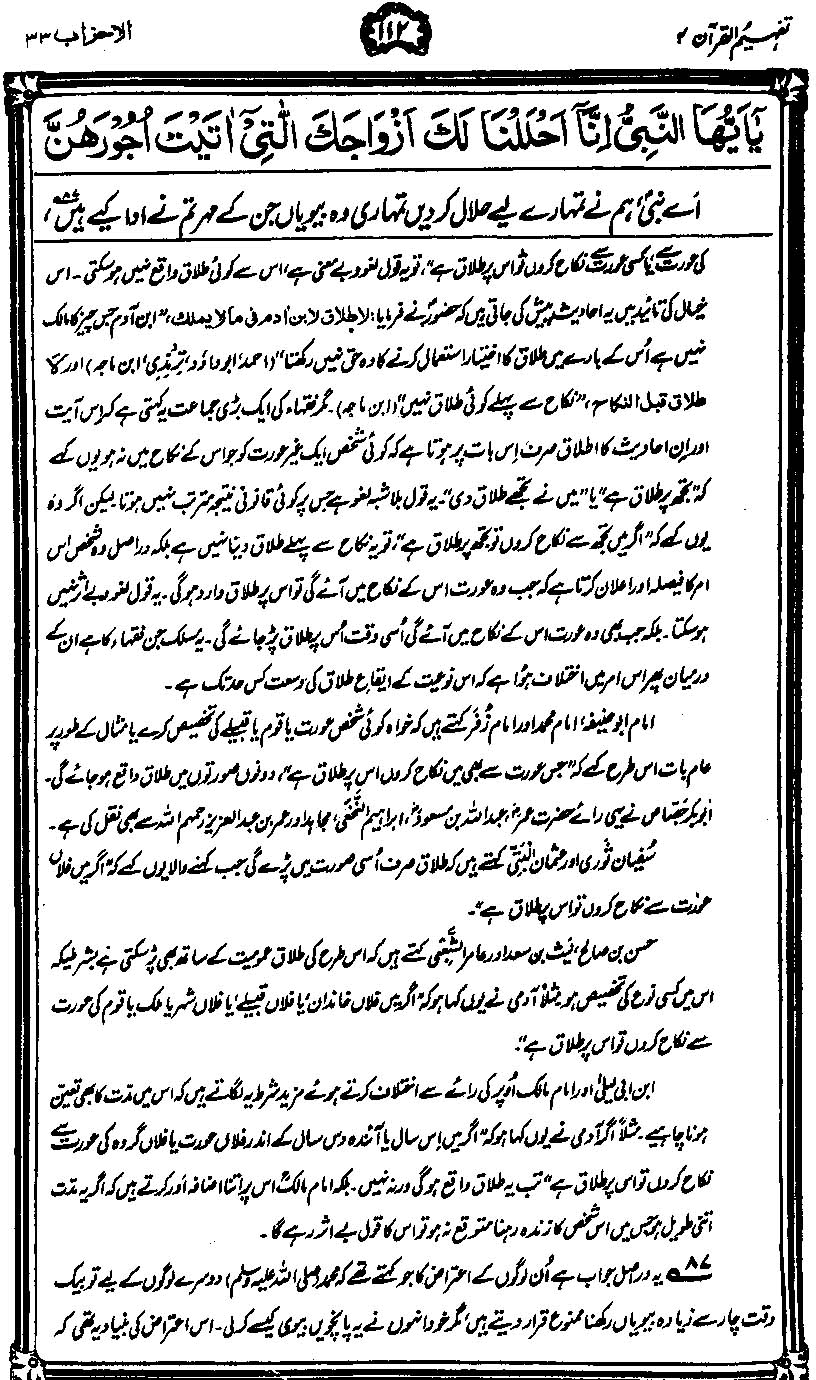 تفہیم القرآن ۴
۱۱۲
الاحزاب ۳۳
يٰۤاَيُّهَا النَّبِىُّ اِنَّاۤ اَحۡلَلۡنَا لَكَ اَزۡوَاجَكَ الّٰتِىۡۤ اٰتَيۡتَ اُجُوۡرَهُنَّ
اَے نبیؐ، ہم نے تمہارے لیے حلال کر دیں تمہاری وہ بیویاں جن کے مہر تم نے ادا کیے ہیں،۸۷
کی عورت سے یا کسی عورت سے نکاح کروں تو اس پر طلاق ہے"، تو یہ قول لغو و بے معنی ہے، اس سے کوئی طلاق واقع نہیں ہو سکتی۔ اس
خیال کی تائید میں یہ احادیث پیش کی جاتی ہیں کہ حضورؐ نے فرمایا: لاطلاق لابن اٰدم فی مالا یملك، "ابن آدم جس چیز کا مالک
نہیں ہے اُس کے بارے میں طلاق کا اختیار استعمال کرنے کا وہ حق نہیں رکھتا" (احمد، ابوداؤد، ترمذی، ابن ماجہ) اور لا
طلاق قبل النکاح، "نکاح سے پہلے کوئی طلاق نہیں" (ابن ماجہ)۔ مگر فقہاء کی ایک بڑی جماعت یہ کہتی ہے کہ اِس آیت
اور اِن احادیث کا اطلاق صرف اِس بات پر ہوتا ہے کہ کوئی شخص ایک غیر عورت کو جو اس کے نکاح میں نہ ہو یوں کہے
کہ "تجھ پر طلاق ہے" یا "میں نے تجھے طلاق دی"۔ یہ قول بلاشبہ لغو ہے جس پر کوئی قانونی نتیجہ مترتب نہیں ہوتا، لیکن اگر وہ
یوں کہے کہ "اگر میں تجھ سے نکاح کروں تو تجھ پر طلاق ہے"، تو یہ نکاح سے پہلے طلاق دینا نہیں ہے بلکہ دراصل وہ شخص اس
امر کا فیصلہ اور اعلان کرتا ہے کہ جب وہ عورت اس کے نکاح میں آئے گی تو اس پر طلاق وارد ہوگی۔ یہ قول لغو و بے اثر نہیں
ہو سکتا۔ بلکہ جب بھی وہ عورت اس کے نکاح میں آئے گی اُسی وقت اُس پر طلاق پڑ جائے گی۔ یہ مسلک جن فقہاء کا ہے ان کے
درمیان پھر اس امر میں اختلاف ہوا ہے کہ اس نوعیت کے ایقاعِ طلاق کی وسعت کس حد تک ہے۔
امام ابوحنیفہ، امام محمد اور امام زُفَر کہتے ہیں کہ خواہ کوئی شخص عورت یا قوم یا قبیلے کی تخصیص کرے یا مثال کے طور پر
عام بات اس طرح کہے کہ "جس عورت سے بھی میں نکاح کروں اس پر طلاق ہے"، دونوں صورتوں میں طلاق واقع ہو جائے گی۔
ابوبکر جصّاص نے یہی رائے حضرت عمرؓ، عبداللہ بن مسعودؓ، ابراہیم النَّخَعی، مجاہد اور عمر بن عبدالعزیز رحمہم اللہ سے بھی نقل کی ہے۔
سُفیان ثَوری اور عثمان البَتّی کہتے ہیں کہ طلاق صرف اُسی صورت میں پڑے گی جب کہنے والا یوں کہے کہ "اگر میں فلاں
عورت سے نکاح کروں تو اس پر طلاق ہے"۔
حسن بن صالح، لیث بن سعد اور عامر الشَّعبی کہتے ہیں کہ اس طرح کی طلاق عمومیت کے ساتھ بھی پڑ سکتی ہے بشرطیکہ
اس میں کسی نوع کی تخصیص ہو۔ مثلاً آدمی نے یوں کہا ہو کہ "اگر میں فلاں خاندان، یا فلاں قبیلے، یا فلاں شہر یا ملک یا قوم کی عورت
سے نکاح کروں تو اس پر طلاق ہے"۔
ابن ابی لیلیٰ اور امام مالک اُوپر کی رائے سے اختلاف کرتے ہوئے مزید شرط یہ لگاتے ہیں کہ اس میں مدت کا بھی تعین
ہونا چاہیے۔ مثلاً اگر آدمی نے یوں کہا ہو کہ "اگر میں اِس سال یا آئندہ دس سال کے اندر فلاں عورت یا فلاں گروہ کی عورت سے
نکاح کروں تو اس پر طلاق ہے" تب یہ طلاق واقع ہوگی ورنہ نہیں۔ بلکہ امام مالکؒ اس پر اتنا اضافہ اور کرتے ہیں کہ اگر یہ مدت
اتنی طویل ہو جس میں اُس شخص کا زندہ رہنا متوقع نہ ہو تو اس کا قول بے اثر رہے گا۔
۸۷ یہ دراصل جواب ہے اُن لوگوں کے اعتراض کا جو کہتے تھے کہ محمد (صلی اللہ علیہ وسلم) دوسرے لوگوں کے لیے تو بیک
وقت چار سے زیادہ بیویاں رکھنا ممنوع قرار دیتے ہیں، مگر خود انہوں نے یہ پانچویں بیوی کیسے کر لی۔ اس اعتراض کی بنیاد یہ تھی کہ